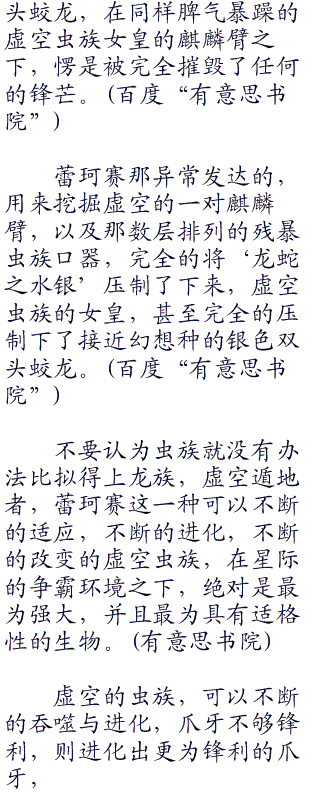 头蛟龙，在同样脾气暴躁的
虚空虫族女皇的麒麟臂之
下，愣是被完全摧毁了任何
的锋芒。(百度“有意思书
院”)
蕾珂赛那异常发达的，
用来挖掘虚空的一对麒麟
臂，以及那数层排列的残暴
虫族口器，完全的将‘龙蛇
之水银’压制了下来，虚空
虫族的女皇，甚至完全的压
制下了接近幻想种的银色双
头蛟龙。(百度“有意思书
院”)
不要认为虫族就没有办
法比拟得上龙族，虚空遁地
者，蕾珂赛这一种可以不断
的适应，不断的进化，不断
的改变的虚空虫族，在星际
的争霸环境之下，绝对是最
为强大，并且最为具有适格
性的生物。(有意思书院)
虚空的虫族，可以不断
的吞噬与进化，爪牙不够锋
利，则进化出更为锋利的爪
牙，